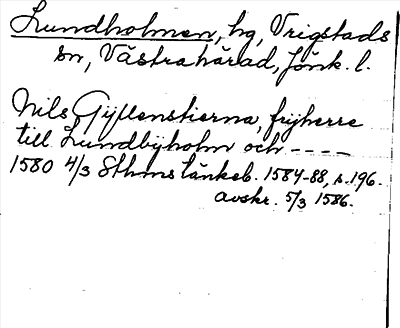 Lundholmen, hg, Vrigstads
sn, Västra härad, Jönk. l.
Nils Gyllenstierna, frijherre
till Lundbyholm och ----
1580 4/3 Sthms tänkeb. 1584-88, s. 196.
avskr. 5/3 1586.